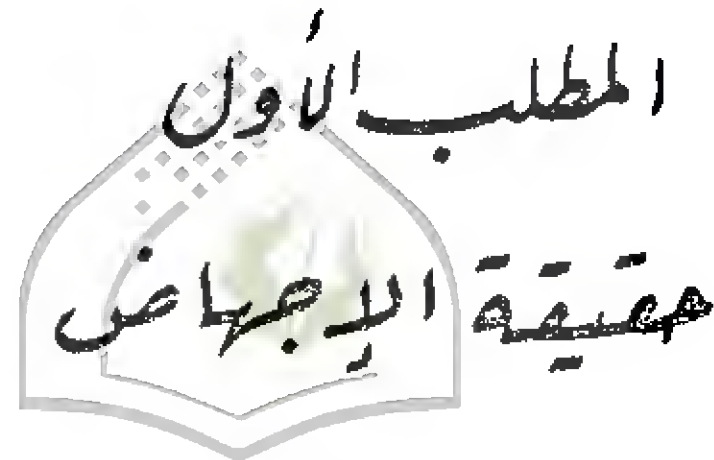 المطلب الأول
حقيقة الإجهاض